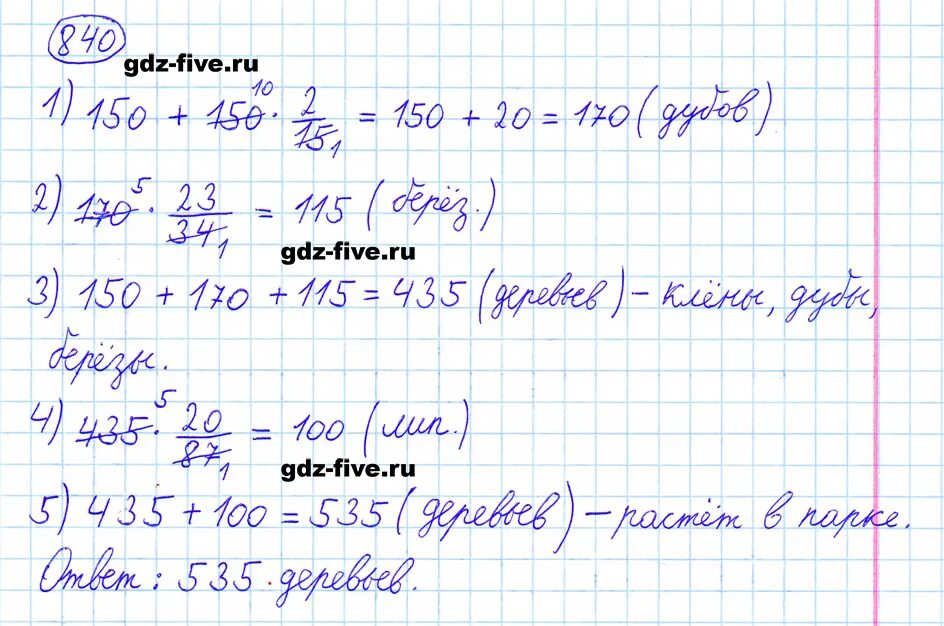 840
gdz-five.ru
1) 150 + 150 10 · 2/15 1 = 150 + 20 = 170 (дубов)
2) 170 5 · 23/34 1 = 115 (берёз.)
gdz-five.ru
3) 150 + 170 + 115 = 435 (деревьев) – клёны, дубы,
берёзы.
4) 435 5 · 20/87 1 = 100 (лип.)
gdz-five.ru
5) 435 + 100 = 535 (деревьев) – растёт в парке.
Ответ: 535 деревьев.